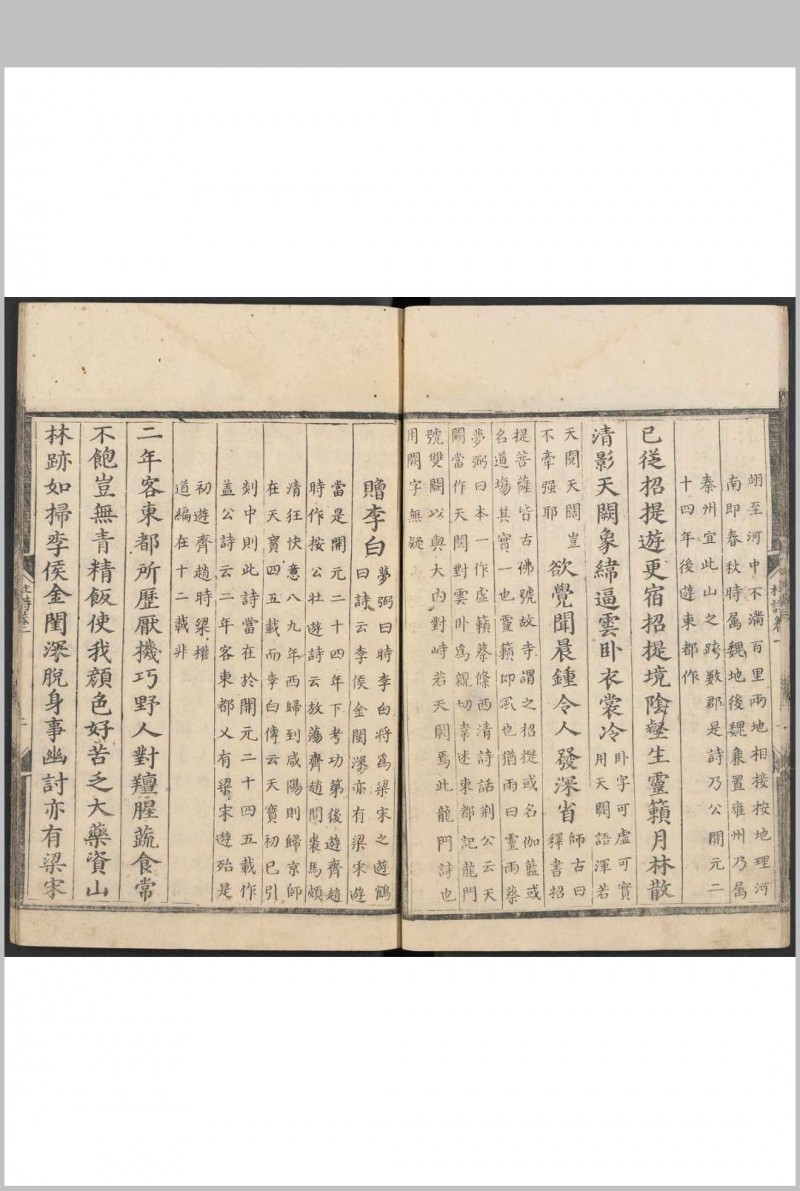 翊至河中不滿百里兩地相接按地理河
南即春秋時属魏地後魏兼置雍州乃属
秦州宜此山之跨數郡是詩乃公開元二
十四年後遊東都作
已從招提遊更宿招提境陰壑生靈籟月林散
清影天闕象緯逼雲卧衣裳冷
卧字可虛可實
用天闚語渾若
天閱天闚豈
不牽强耶
欲覺聞晨鍾令人發深省
師古曰
釋書招
提菩薩皆古佛號故寺謂之招提或名伽藍或
名道場其實一也靈籟即風也猶雨曰靈雨蔡
夢弼曰本一作虛籟蔡絛西清詩話荆公云天
闕當作天閱對雲卧為親切韋述東都記龍門
號雙闕以與大内對峙若天闕焉此龍門詩也
用闕字無疑
杜詩卷一
贈李白
夢弼曰時李白將為梁宋之遊鶴
曰詩云李侯金閨深亦有梁宋遊
當是開元二十四年下考功第後遊齊趙
時作按公壯遊詩云放蕩齊趙間裘馬頗
清狂快意八九年西歸到咸陽則歸京師
在天寶四五載而李白傳云天寶初已引
剡中則此詩當在於開元二十四五載作
盖公詩云二年客東都又有梁宋遊殆是
初遊齊趙時梁權
道編在十二載非
二年客東都所歷厭機巧野人對羶腥蔬食常
不飽豈無青精飯使我顔色好苦乏大藥資山
林跡如掃李侯金閨深脫身事幽討亦有梁宋